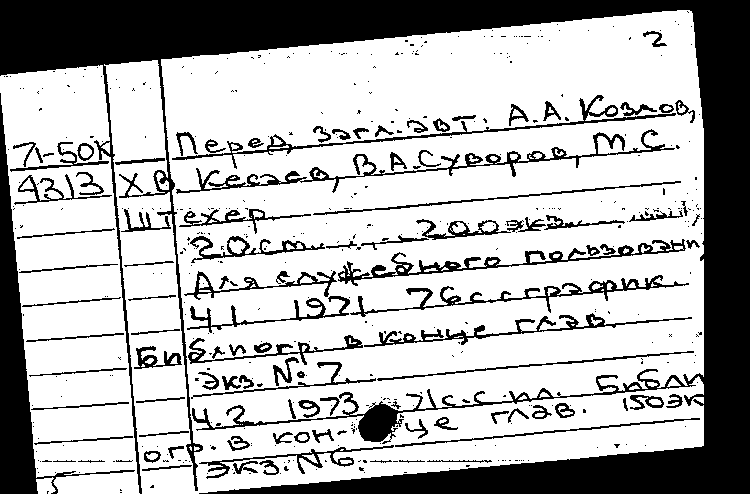 2
71-50К Перед загл.авт: А.А. Козлов,
4313 Х.В. Кесаев, В.А.Суворов, М.С.
Штехер.
20.см. 200экз.
Для служебного пользовани
Ч.1. 1971. 76с.с график.
Библиогр. в конце глав.
Экз. №7.
Ч.2. 1973 71с.с ил. Библи
огр. в кон- це глав. 150эк
Экз. N6.